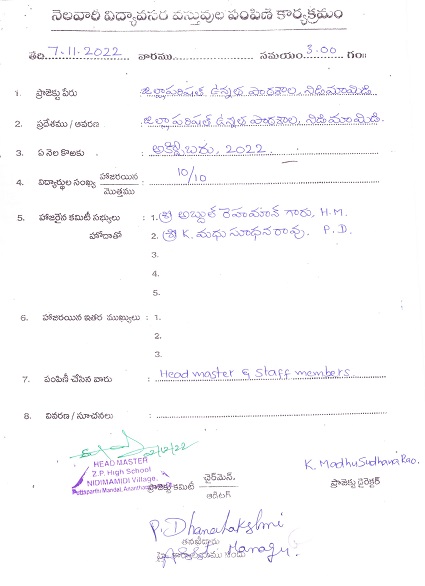 నెలవారి విద్యావసర వస్తువుల పంపిణి కార్యక్రమం
తేది. 7-11-2022 వారము.................... సమయం. 3-00 గం॥
1. ప్రాజెక్టు పేరు : జిల్లాపరిషత్ ఉన్నత పాఠశాల, నిడిమామిడి
2. ప్రదేశము / ఆవరణ : జిల్లాపరిషత్ ఉన్నత పాఠశాల, నిడిమామిడి.
3. ఏ నెల కొఱకు : అక్టోబరు, 2022.
4. విద్యార్థుల సంఖ్య హాజరయిన / మొత్తము : 10/10
5. హాజరైన కమిటీ సభ్యులు : 1. శ్రీ అబ్దుల్ రెహమాన్ గారు, H.M.
హోదాతో 2. శ్రీ K. మధు సూధనరావు. P.D.
3.
4.
5.
6. హాజరయిన ఇతర ముఖ్యులు : 1.
2.
3.
7. పంపిణీ చేసిన వారు : Head master & Staff members
8. వివరణ / సూచనలు :
12/22
HEAD MASTER
Z.P. High School
NIDIMAMIDI Village,
Puttaparthi Mandal,
ప్రాజెక్టు కమిటీ ఛైర్‌మెన్. / ఆడిటర్
K. Madhu Sudhana Rao.
ప్రాజెక్టు డైరెక్టర్
P. Dhanalakshmi
Manager